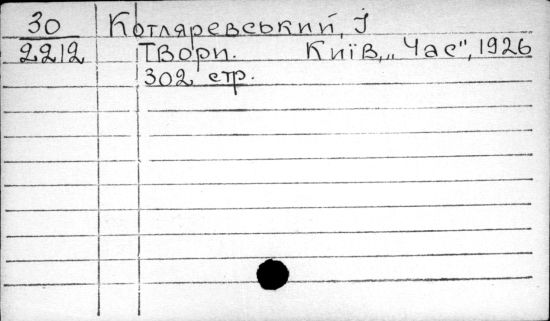 30 Котляревський, І
2212 Твори. Київ, „Час", 1926
302 стр.